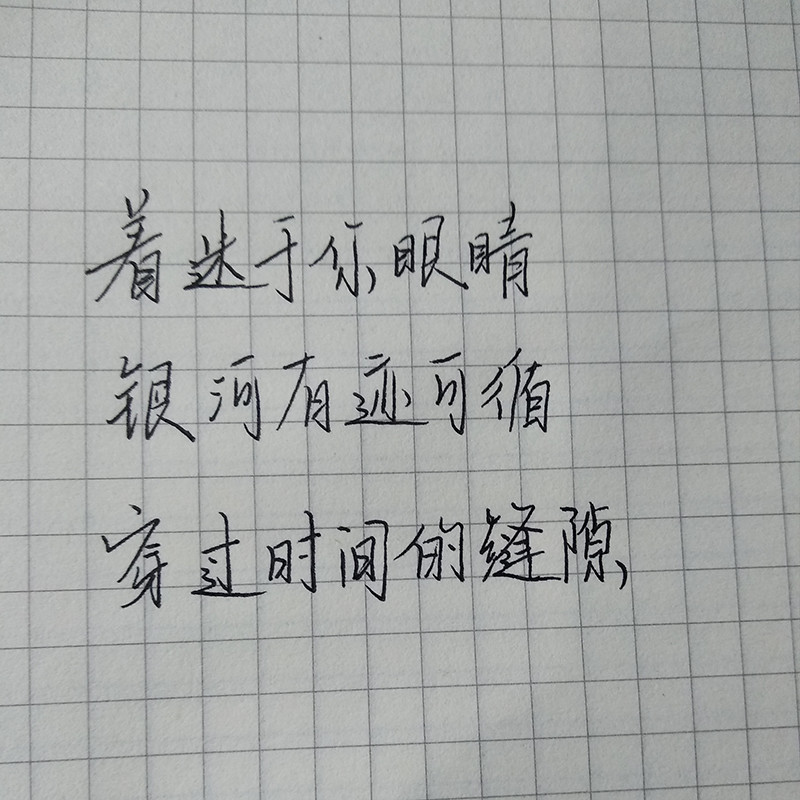 着迷于你眼睛
银河有迹可循
穿过时间的缝隙